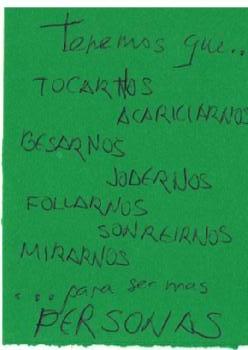 Tenemos que...
TOCARNOS
ACARICIARNOS
BESARNOS
JODERNOS
FOLLARNOS
SONREIRNOS
MIRARNOS
...para ser mas
PERSONAS